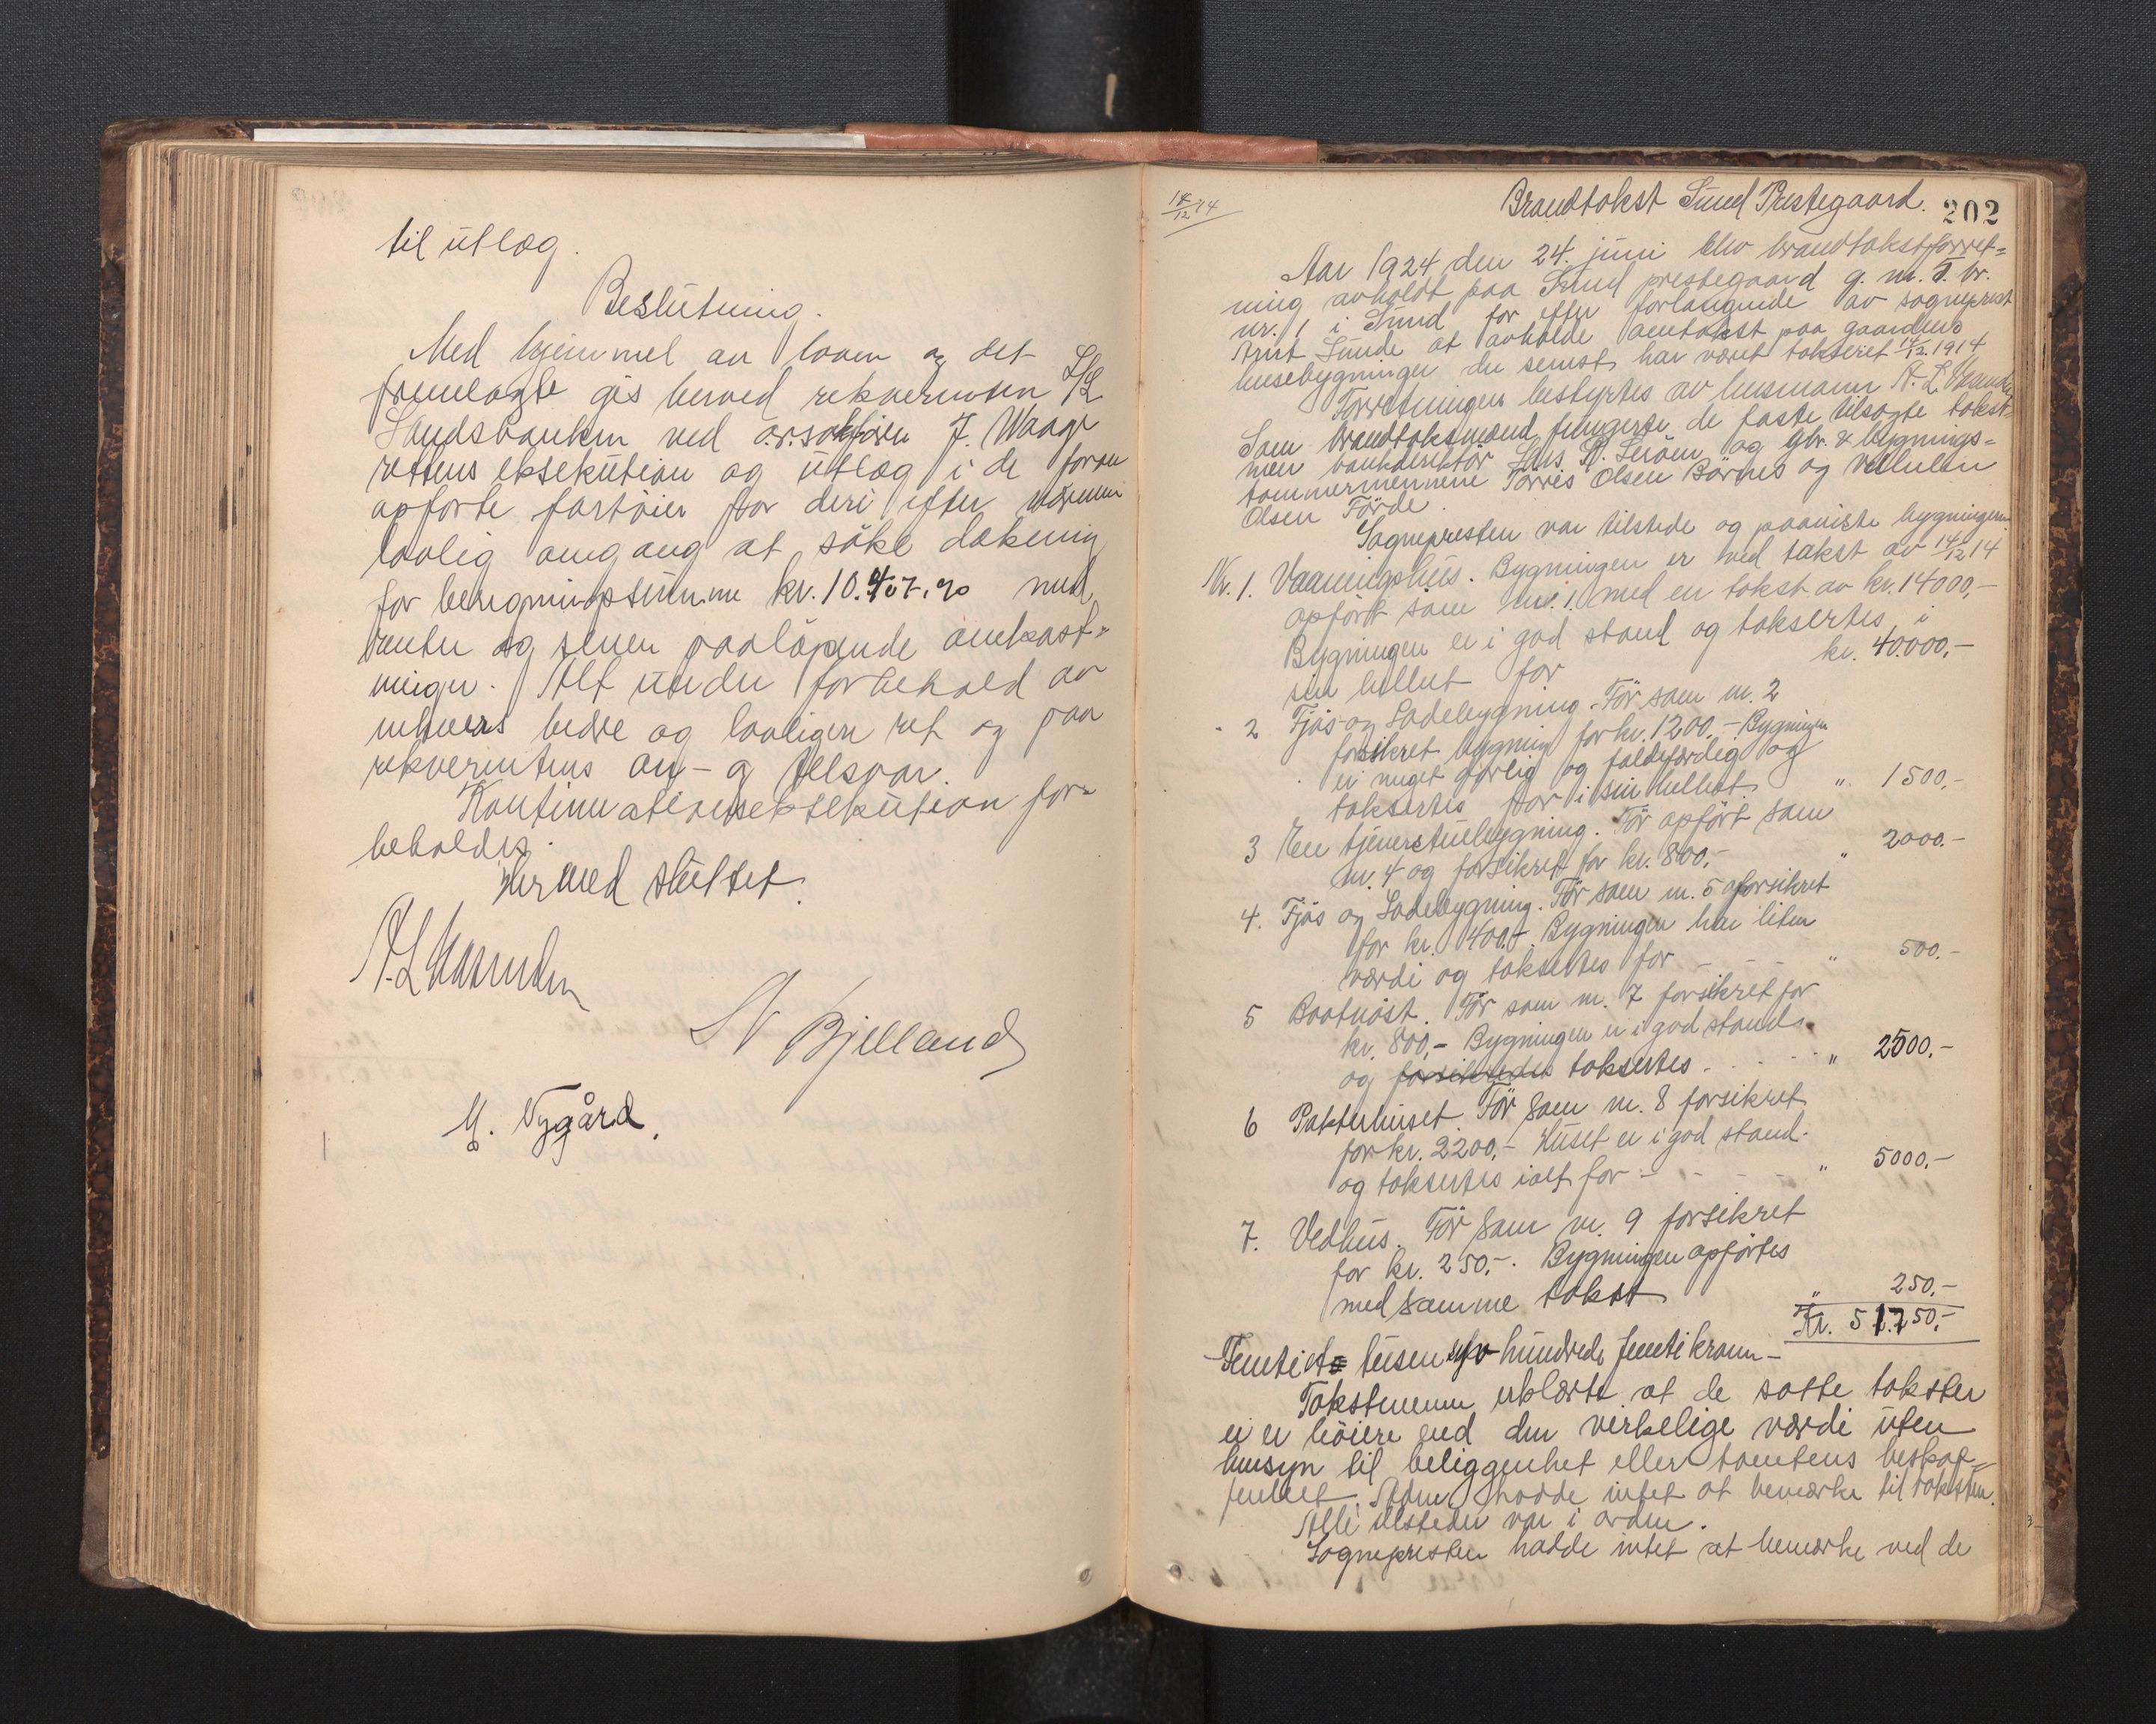 til utlæg.
Beslutning.
Med hjemmel av loven og det
fremlagte gis herved rekvirenten S/L
Landsbanken ved o.r.sakfører J. Waage
rettens eksekution og utlæg i de foran
opførte fartøier for deri efter nærmere
lovlig omgang at søke dækning
for beregningssumme kr. 10.407.90 med
renter og senere paaløpende omkost-
ninger. Alt under forbehold av
enhvers bedre og lovligere ret og paa
rekvirentens an- og tilsvar.
Kontinuationseksekution for-
beholdes.
Hermed sluttet.
A. L.
N Bjelland
M. Nygård.
14/12 14
Brandtakst Sund Prestegaard.
202
Aar 1924 den 24. juni blev brandtakstforret-
ning avholdt paa Sund prestegaard g. nr. 5. br.
nr. 1 i Sund for efter forlangende av sogneprest
Arnt Sunde at avholde omtakst paa gaardens
husebygninger der senest har været takseret 14/12.1914
Forretningen bestyrtes av lensmann A. L.
Som brandtakstmænd fungerte de faste tilsagte takst-
men bankdirektør Lars A. Lerøen og gbr. & bygnings-
tømmermennene Torris Olsen Börnes og Vilhelm
Olsen Förde.
Sognepresten var tilstede og paaviste bygningene
Nr. 1. Vaaningshus. Bygningen er ved takst av 14/12 14
opført som nr. 1. med en takst av kr. 14000,-
Bygningen er i god stand og taksertes i
sin helhet for kr. 40.000,-
" 2 Fjös- og Ladebygning. För som nr. 2
forsikret bygning for kr. 1200,- Bygningen
er meget darlig og faldefærdig og
taksertes for i sin helhet " 1500,-
3 En tjenerstuebygning. För opført som
nr. 4 og forsikret for kr. 800,- " 2000.-
4. Fjös og Ladebygning. För som nr. 5 forsikret
for kr. 400.- Bygningen har liten
værdi og taksertes for - - - " 500.-
5 Baatnöst. För som nr. 7 forsikret for
kr. 800,- Bygningen er i god stand
og forsikredes taksertes - - - " 2500.-
6 Pakterhuset. För som nr. 8 forsikret
for kr. 2200,- Huset er i god stand.
og taksertes ialt for - - - - " 5000.-
7. Vedhus. För som nr. 9 forsikret
for kr. 250,-. Bygningen opførtes
med samme takst " 250.-
Kr. 51.750,-
Femtiet tusen syv hundrede femti kroner -
Takstmennene erklærte at de satte takster
ei er höiere end den virkelige værdi uten
hensyn til beliggenhet eller tomtens beskaf-
fenhet. hadde intet at bemærke til taksten.
Alle ildsteder var i orden.
Sognepresten hadde intet at bemærke ved de